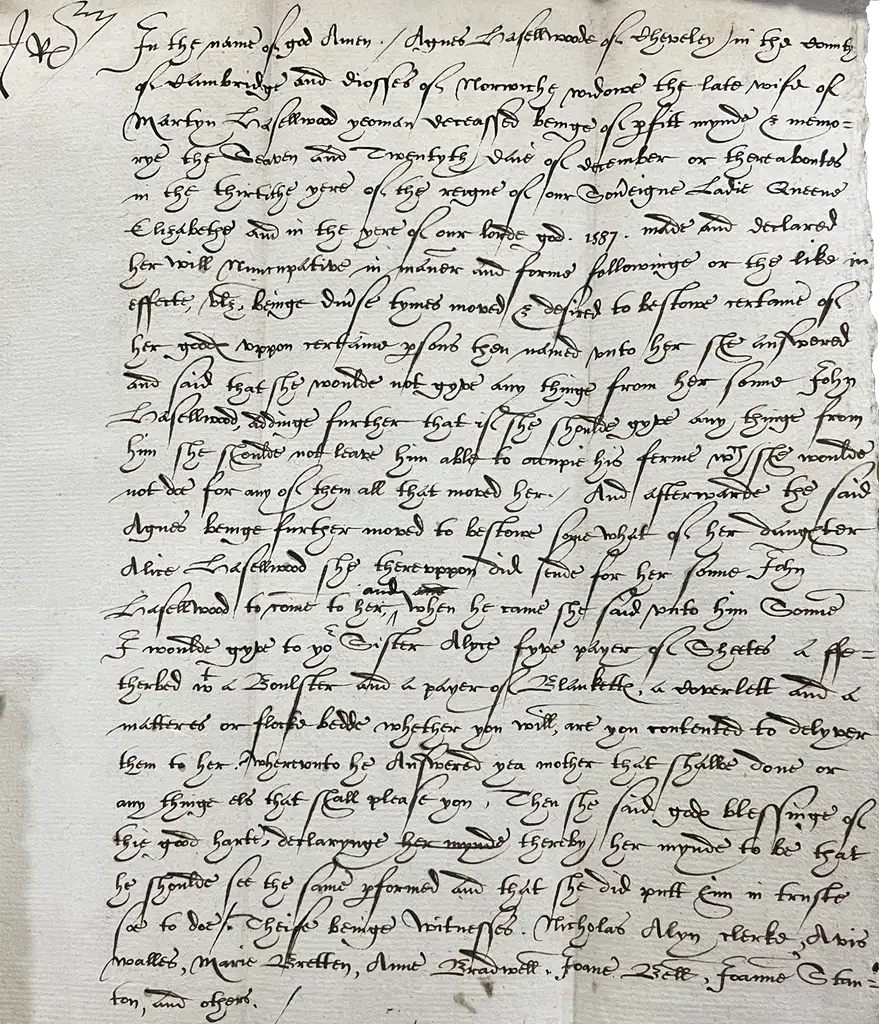 In the name of god Amen. / Agnes Hasellwoode of Cheveley in the County
of Cambridge and diosses of Norwiche widowe the late wife of
Martyn Hasellwood yeoman deceassed beinge of pfitt mynde & memo=
rye the Seaven and Twentyth daie of december or thereaboutes
in the thirtithe yere of the reigne of our Soveigne Ladie Queene
Elizabethe and in the yere of our lorde god. 1587. made and declared
her will Nuncupative in maner and forme followinge or the like in
effecte, vlz, beinge divse tymes moved & desired to bestowe certaine of
her goodes uppon certaine psons then named unto her she answered
and said that she woulde not gyve any thinge from her sonne John
Hasellwood, addinge further that if she shoulde gyve any thinge from
him she shoulde not leave him able to occupie his ferme wch she woulde
not doe for any of them all that moved her. / And afterwarde the said
Agnes beinge further moved to bestowe some what of her daughter
Alice Hasellwood she thereuppon did sende for her sonne John
Hasellwood to come to her, and when he came she said unto him Sonne
I woulde gyve to yor Sister Alyce fyve payer of Sheetes a ffe=
therbed wt a Boulster and a payer of Blanketts, a coverlett and a
matteres or flocke bedde whether you will, are you contented to delyver
them to her. Whereunto he Answered yea mother that shalbe done or
any thinge els that shall please you, Then she said godes blessinge of
thie good harte, declarynge her mynde thereby her mynde to be that
he shoulde see the same pformed and that she did putt him in truste
soe to doe. / Theise beinge witnesses. Nicholas Alyn clerke, Avis
Walles, Marie Bretten, Anne Bradwell, Joane Bell, Joanne Stan=
ton, and others. /